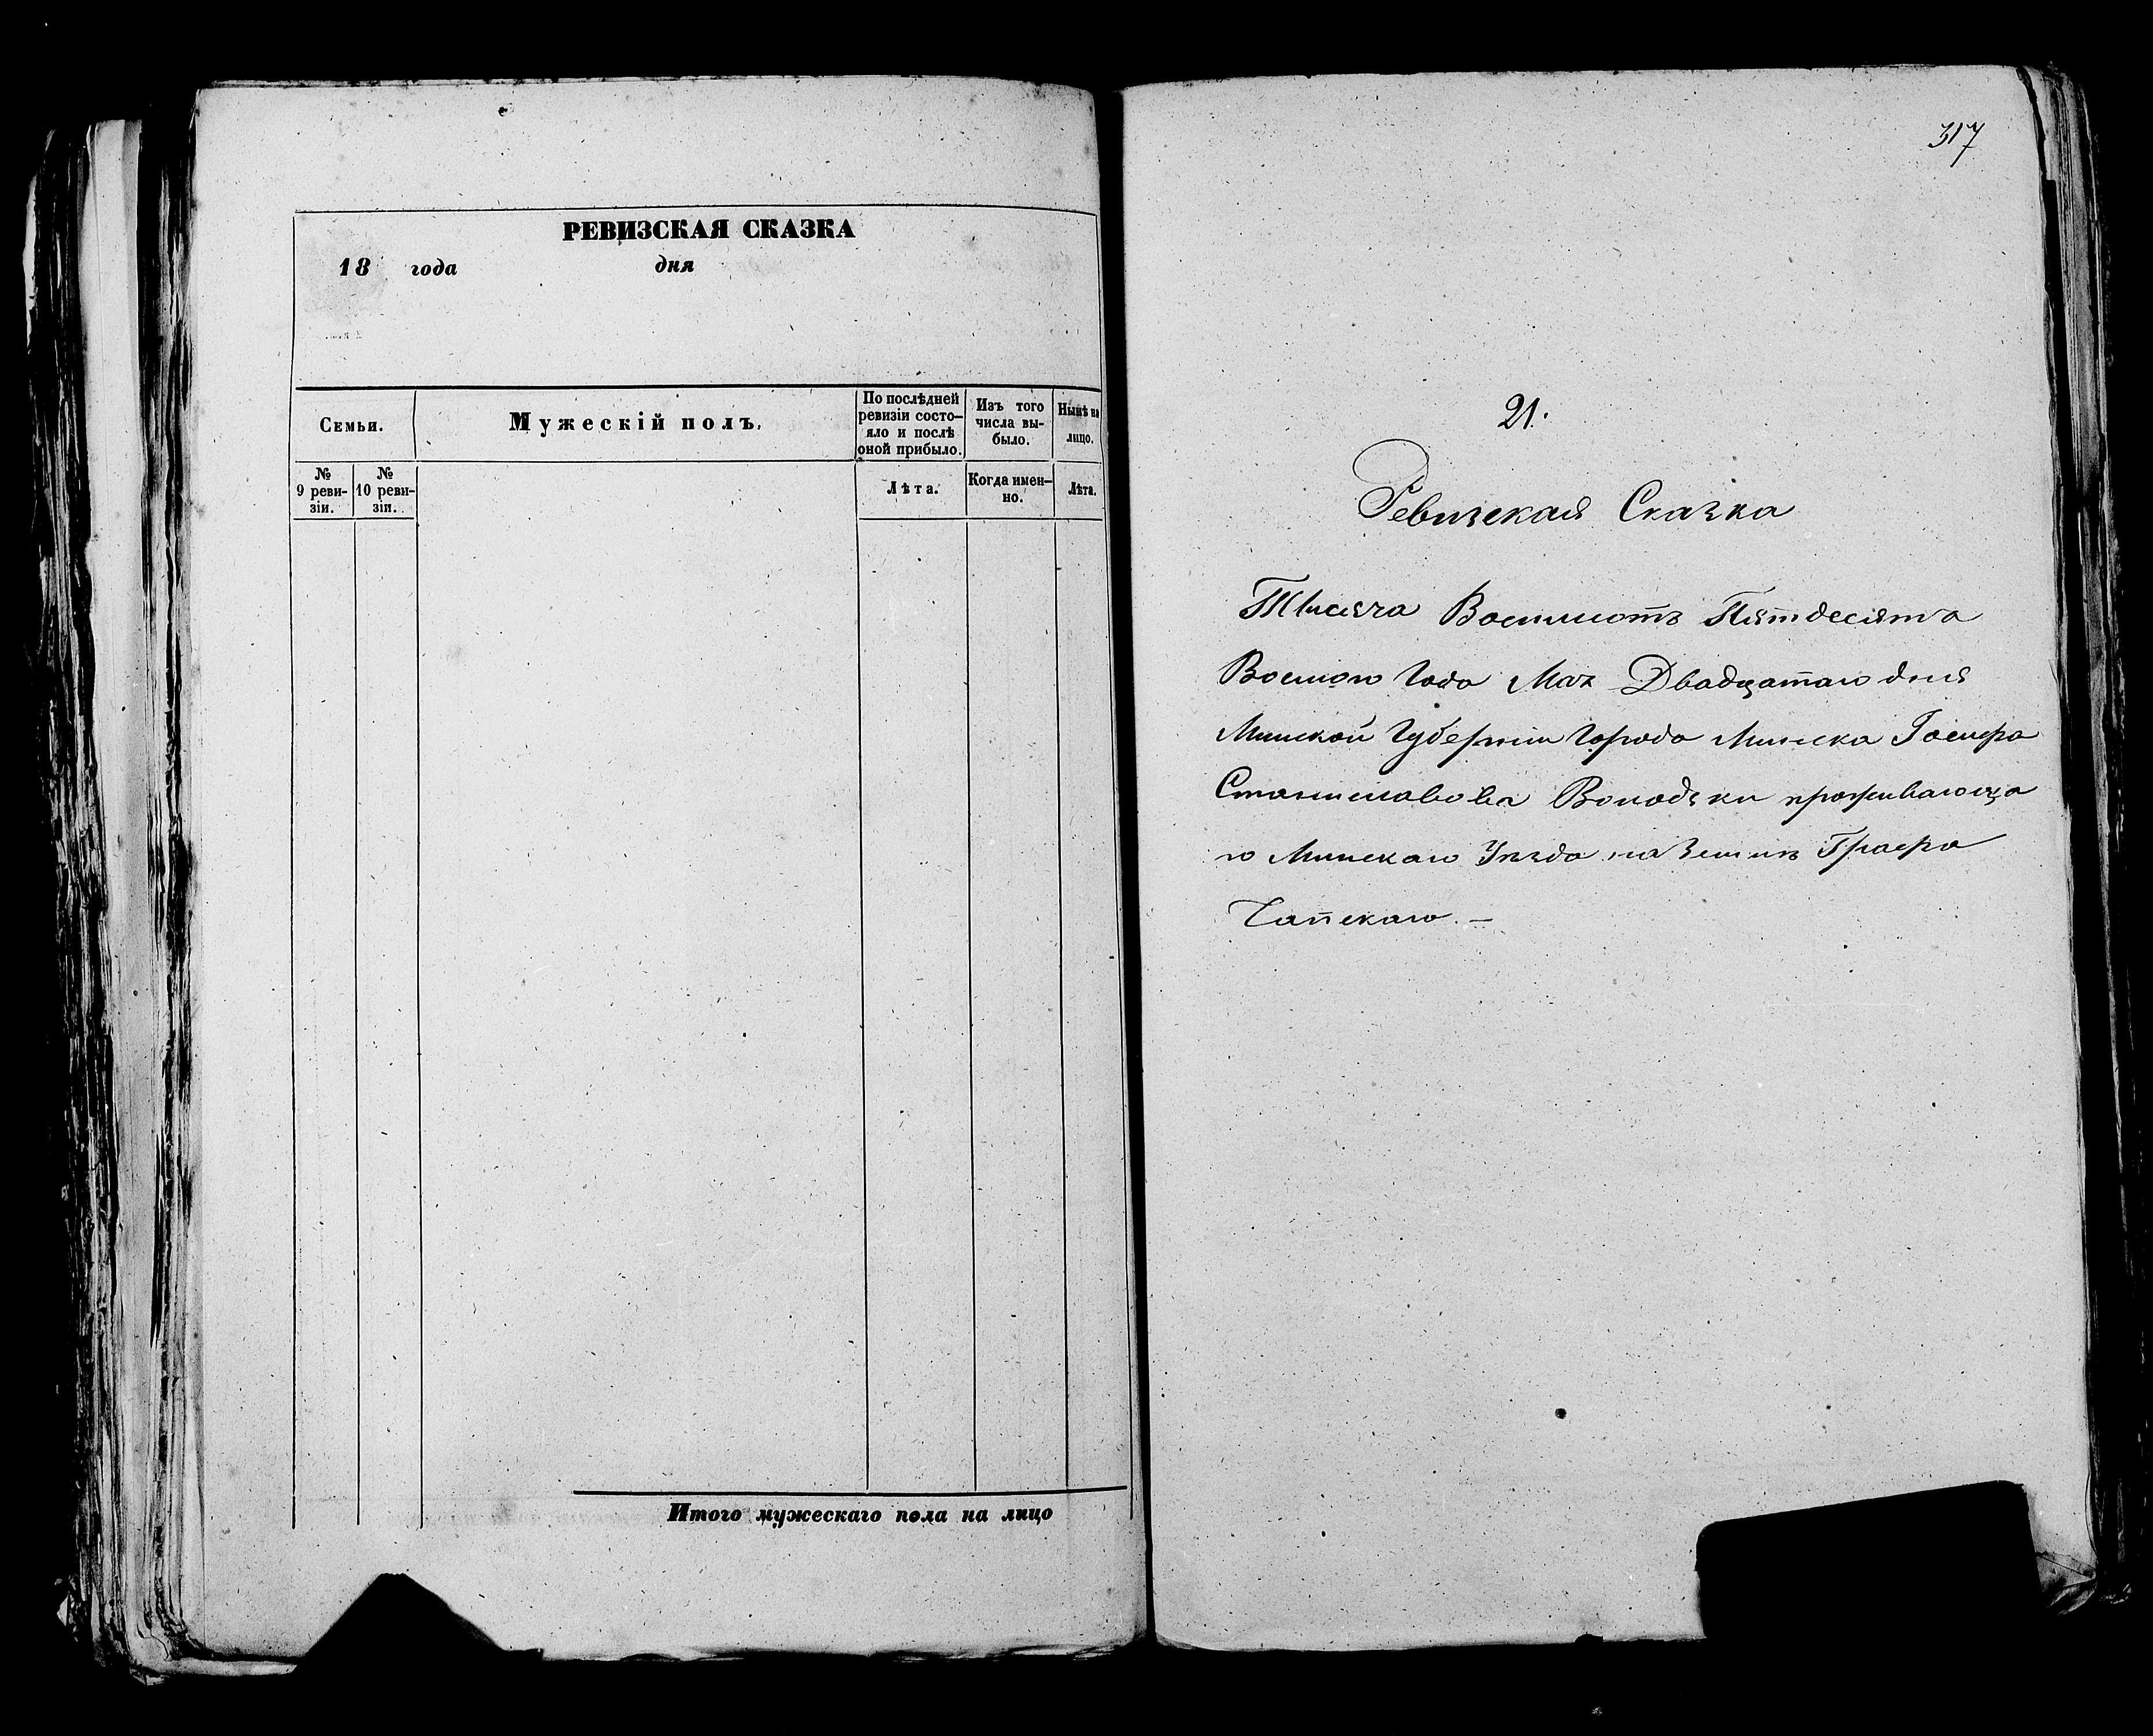 РЕВИЗСКАЯ СКАЗКА
18 года дня
Семьи.
Мужескій полъ.
По послѣдней
ревизіи состо-
яло и послѣ
оной прибыло.
Изъ того
числа вы-
было.
Нынѣ на
лицо.
№
9 реви-
зіи.
№
10 реви-
зіи.
Лѣта.
Когда имен-
но.
Лѣта.
Итого мужескаго пола на лицо
317
21.
Ревизская Сказка
Тысяча Восимсотъ Пятдесята
Восмого Года Мая Двадцатаго дня
Минской Губерніи Города Минска
Станиславова проживающа
го Минскаго Уѣзда на Землѣ Графа
Чапскаго. –